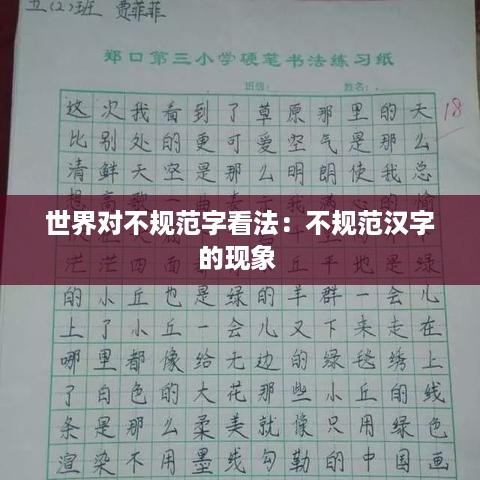 五(2)班 贾菲菲
郑口第三小学硬笔书法练习纸
班级: 姓名:
这次我看到了草原那里的天
18
比别处的更可爱空气是那么
清鲜天空是那么明朗使我总
想高歌一曲表示我满心的愉
世界对不规范字看法：不规范汉字
的现象
茫茫四面都有小丘平地是绿
的小丘也是绿的羊群一会儿
上了小丘一会儿又下来走在
哪里都像给无边的绿毯绣上
了白色的大花那些小丘的线
条是那么柔美就像只用绿色
渲染不用墨线勾勒的中国画